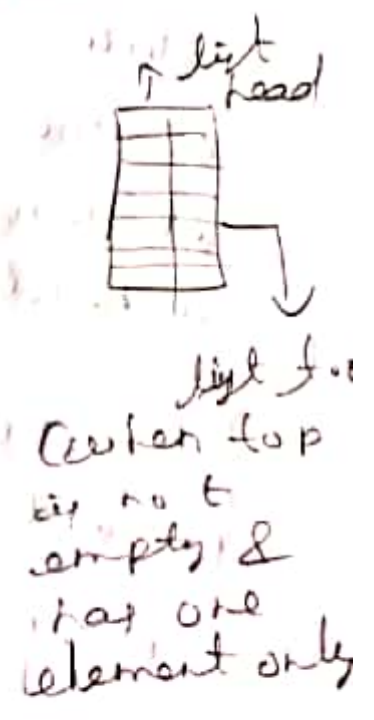 list
head
list
(when top
is not
empty &
has one
element only